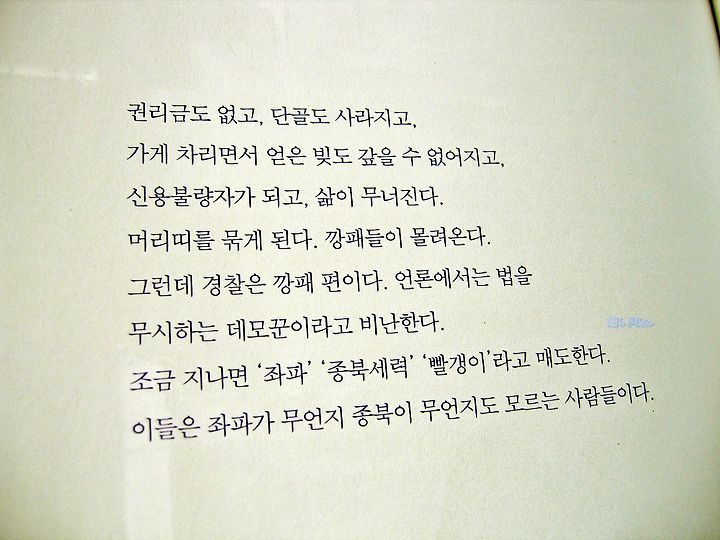 권리금도 없고, 단골도 사라지고,
가게 차리면서 얻은 빚도 갚을 수 없어지고,
신용불량자가 되고, 삶이 무너진다.
머리띠를 묶게 된다. 깡패들이 몰려온다.
그런데 경찰은 깡패 편이다. 언론에서는 법을
무시하는 데모꾼이라고 비난한다.
조금 지나면 ‘좌파’ ‘종북세력’ ‘빨갱이’라고 매도한다.
이들은 좌파가 무언지 종북이 무언지도 모르는 사람들이다.